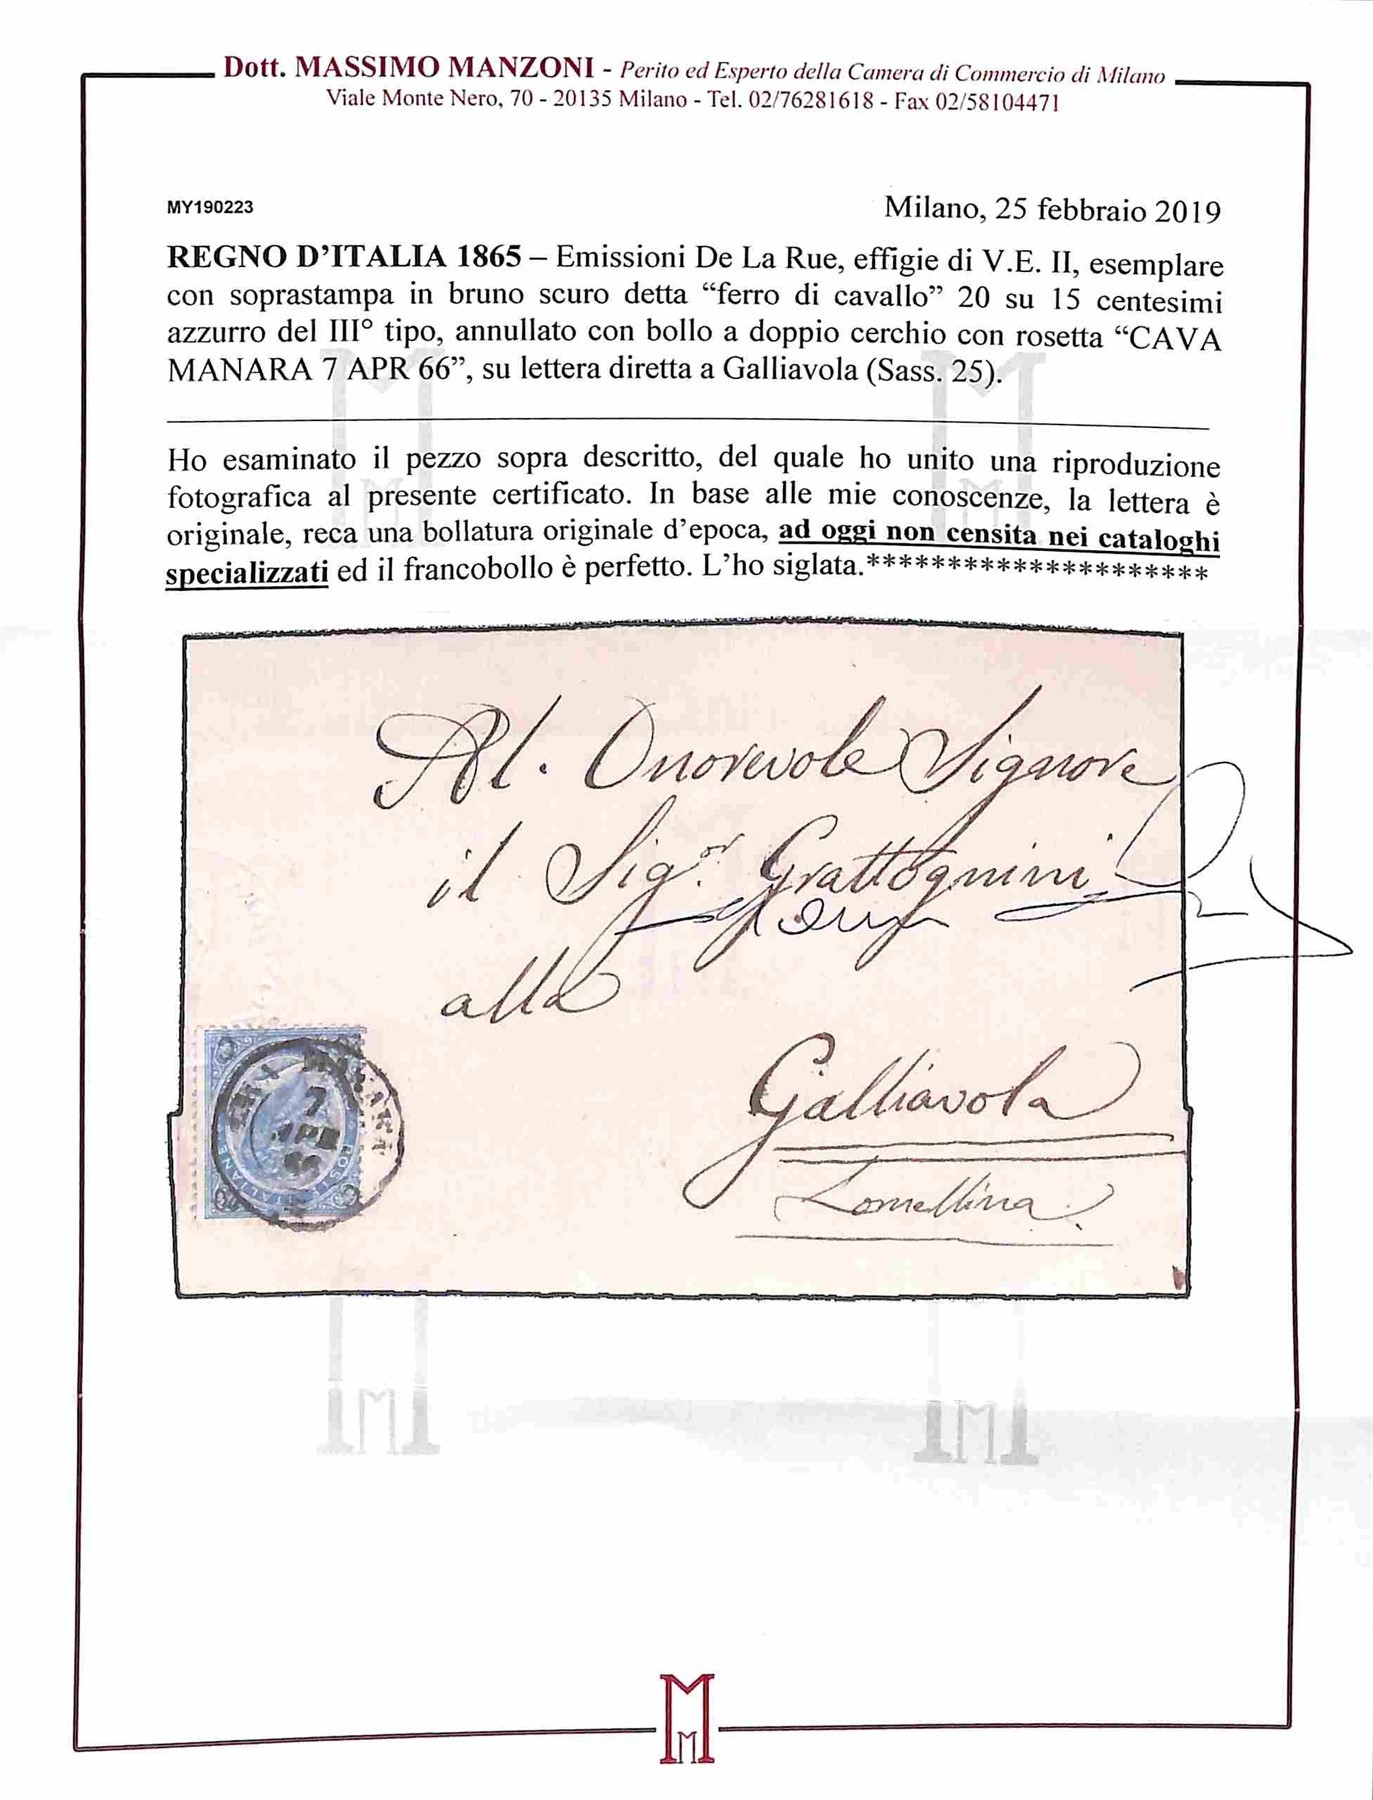 Dott. MASSIMO MANZONI - Perito ed Esperto della Camera di Commercio di Milano
Viale Monte Nero, 70 - 20135 Milano - Tel. 02/76281618 - Fax 02/58104471
MY190223
Milano, 25 febbraio 2019
REGNO D'ITALIA 1865 – Emissioni De La Rue, effigie di V.E. II, esemplare
con soprastampa in bruno scuro detta “ferro di cavallo” 20 su 15 centesimi
azzurro del III° tipo, annullato con bollo a doppio cerchio con rosetta “CAVA
MANARA 7 APR 66”, su lettera diretta a Galliavola (Sass. 25).
Ho esaminato il pezzo sopra descritto, del quale ho unito una riproduzione
fotografica al presente certificato. In base alle mie conoscenze, la lettera è
originale, reca una bollatura originale d'epoca, ad oggi non censita nei cataloghi
specializzati ed il francobollo è perfetto. L'ho siglata.*********************
Al. Onorevole Signore
il Sig.or Grattognini
alla
Galliavola
Lomellina
7
APR
66
MANARA
POSTE ITALIANE
M
M